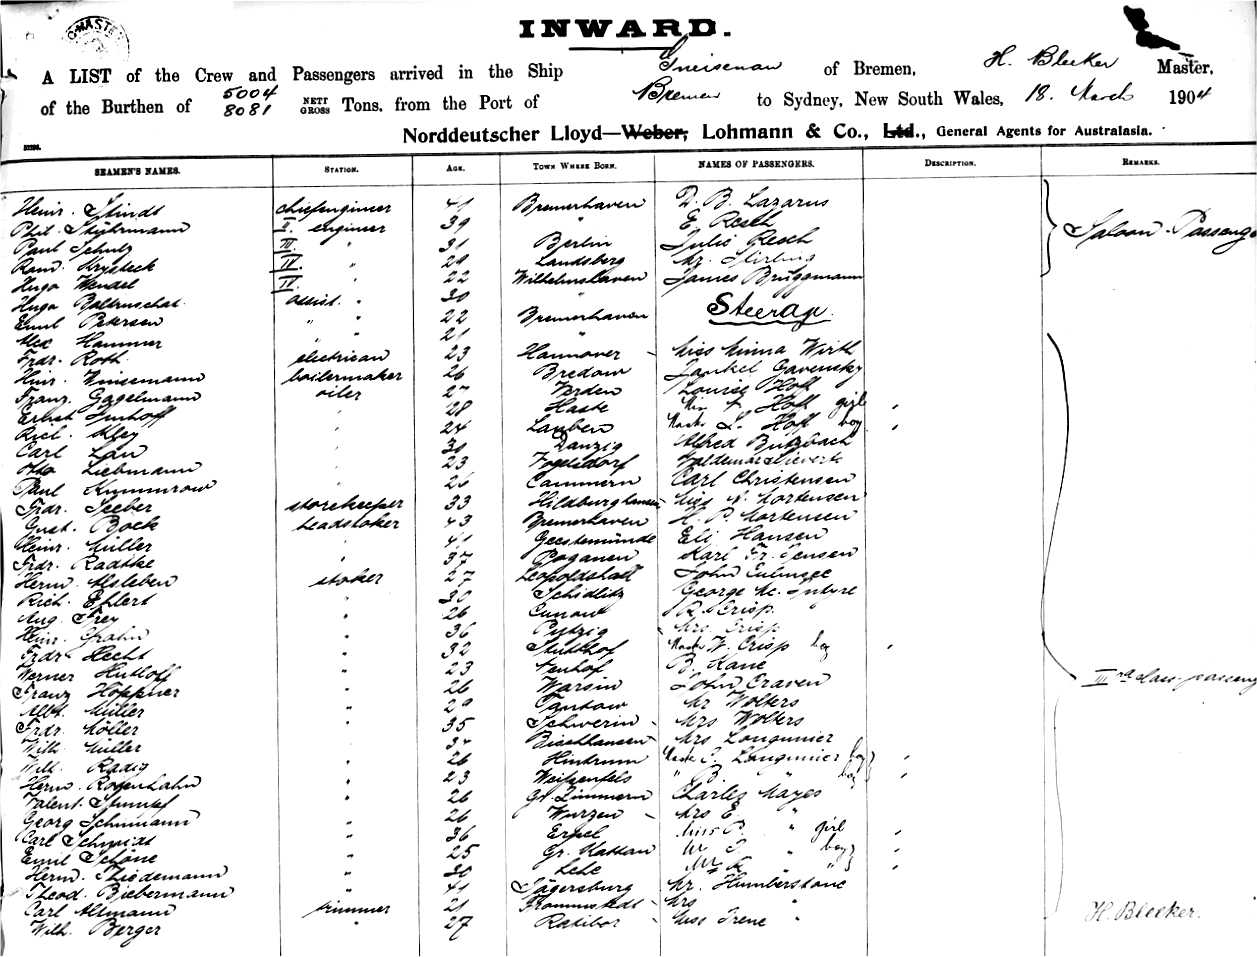 INWARD.
A LIST of the Crew and Passengers arrived in the Ship Gneisenau of Bremen, H. Bleeker Master,
of the Burthen of 5004 8081 NETT GROSS Tons, from the Port of Bremen to Sydney, New South Wales, 18. March 1904
Norddeutscher Lloyd—Weber, Lohmann & Co., Ltd., General Agents for Australasia.
SEAMEN'S NAMES. STATION. AGE. TOWN WHERE BORN. NAMES OF PASSENGERS. DESCRIPTION. REMARKS.
Heinr. Stindt chiefengineer 41 Bremerhaven D. B. Lazarus
Phil. Stührmann II. engineer 39 " E. Resch Saloon-Passenge
Paul Schulz III. " 31 Berlin Julis Resch
Krysteck IV. " 29 Landsberg Mr. Stirling
Hugo Wendel IV. " 22 Wilhelmshaven James Brüggmann
Hugo assist. " 30 "
Emil Petersen " " 22 Bremerhaven Steerage.
Alex Hammer " 21 "
Frdr. Roth electrican 23 Hannover Miss Minna Wirth
Heinr. Winsemann boilermaker 26 Bredow Jankel Gavensky
Franz Gagelmann oiler 27 Verden Louise Holt
Ernst Imhoff 28 Haste Holt girl
Rich. Kley 24 Lauben L. Holt boy
Carl Lau 30 Danzig Alfred Butzbach
Otto Liebmann 23 Vogelsdorf Valdemar Sievert
Paul Kummurow 26 Cammern Carl Christensen
Frdr. Seeber storekeeper 33 Hildburghausen Miss N. Mortensen
Gust. Bock headstoker 43 Bremerhaven H. P. Mortensen
Heinr. Müller 41 Geestemünde Eli Hansen
Frdr. Radtke 37 Poganen Karl Fr. Jensen
Herm. Alsleben stoker 27 Leopoldshall John
Rich. Ehlert " 30 Schidlitz George Mc. Intyre
Aug. Frey " 26 Cunow R. Crisp
Heinr. Grahn " 36 Pyrzig Mrs. Crisp
Frdr. Hecht " 32 Stutthof W. Crisp boy
Werner Huthoff " 23 B. Kane
Franz Höppner " 26 Warsin John Craven IIIrd class-passeng
Alb. Müller " 29 Tantow Mr Wolters
Frdr. Möller " 35 Schwerin Mrs Wolters
Wilh. Müller 34 Bischhausen Mrs Longunier
Wilh. Radig " 26 Longunier boy
Herm. Rosenhahn " 23 Weißenfels " B. " boy
Valent. Stumpf " 26 Gr. Limmern Charles Mayes
Georg Schumann " 26 Wurzen Mrs E "
Carl Schmidt " 36 Erpel Miss P. " girl
Emil Schöne " 25 Gr. Kattau " boy
Herm. Thiedemann " 30 Lehe "
Theod. Biebermann " 41 Jägersburg Mr. Humberstone
Carl Altmann trimmer 21 Frommstedt Mrs " H. Bleeker.
Wilh. Berger " 27 Ratibor Miss Irene "